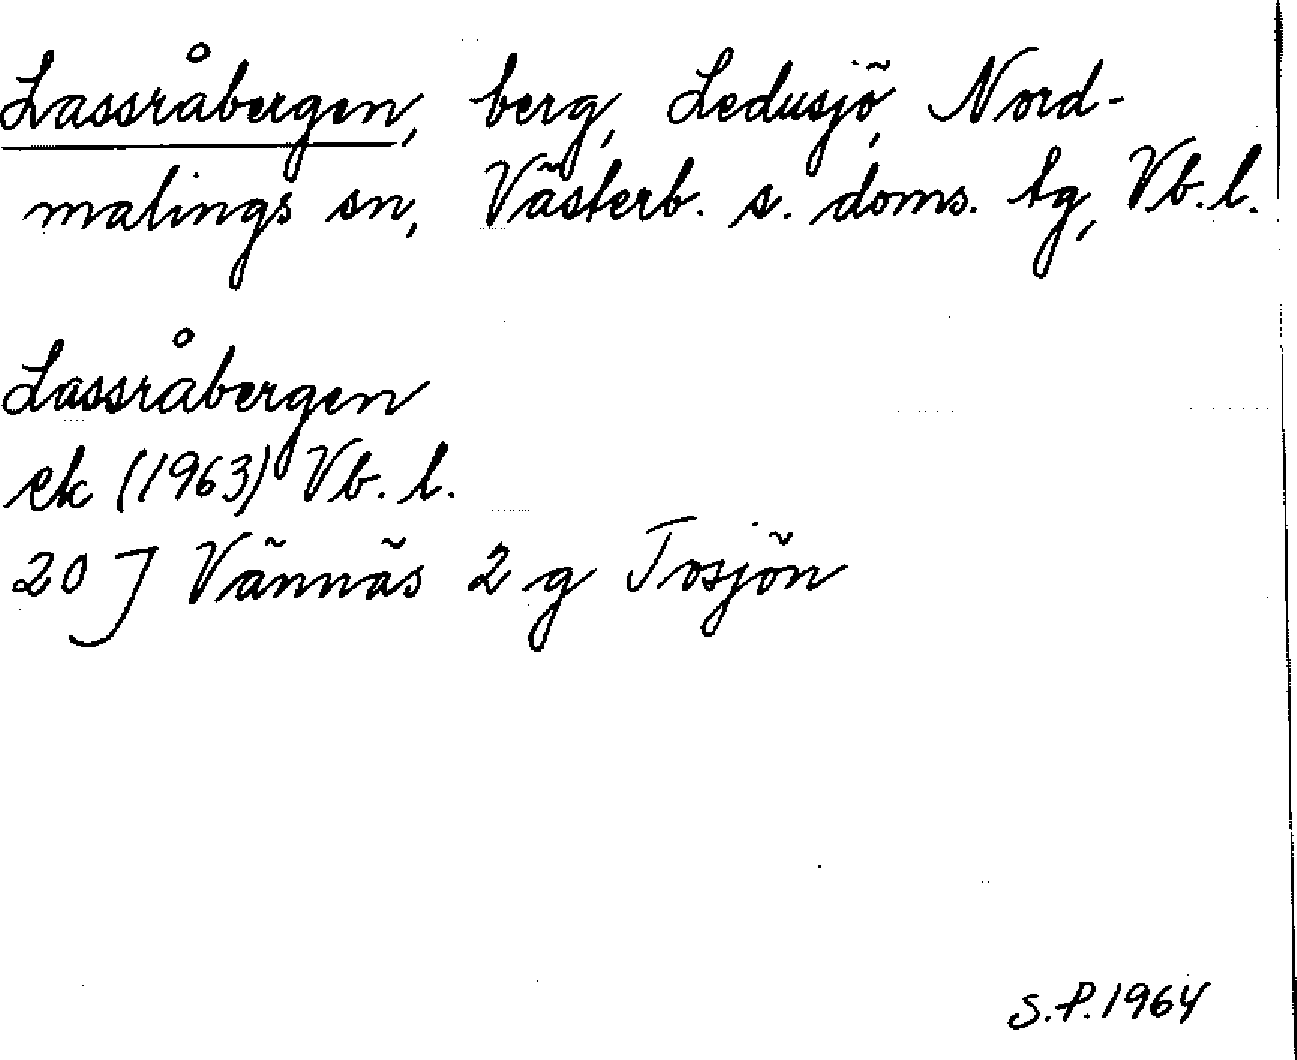 Lassråbergen, berg, Ledusjö, Nord-
malings sn, Västerb. s. doms. tg, Vb. l.
Lassråbergen
ek (1963) Vb. l.
20 J Vännäs 2 g Tosjön
S.P. 1964